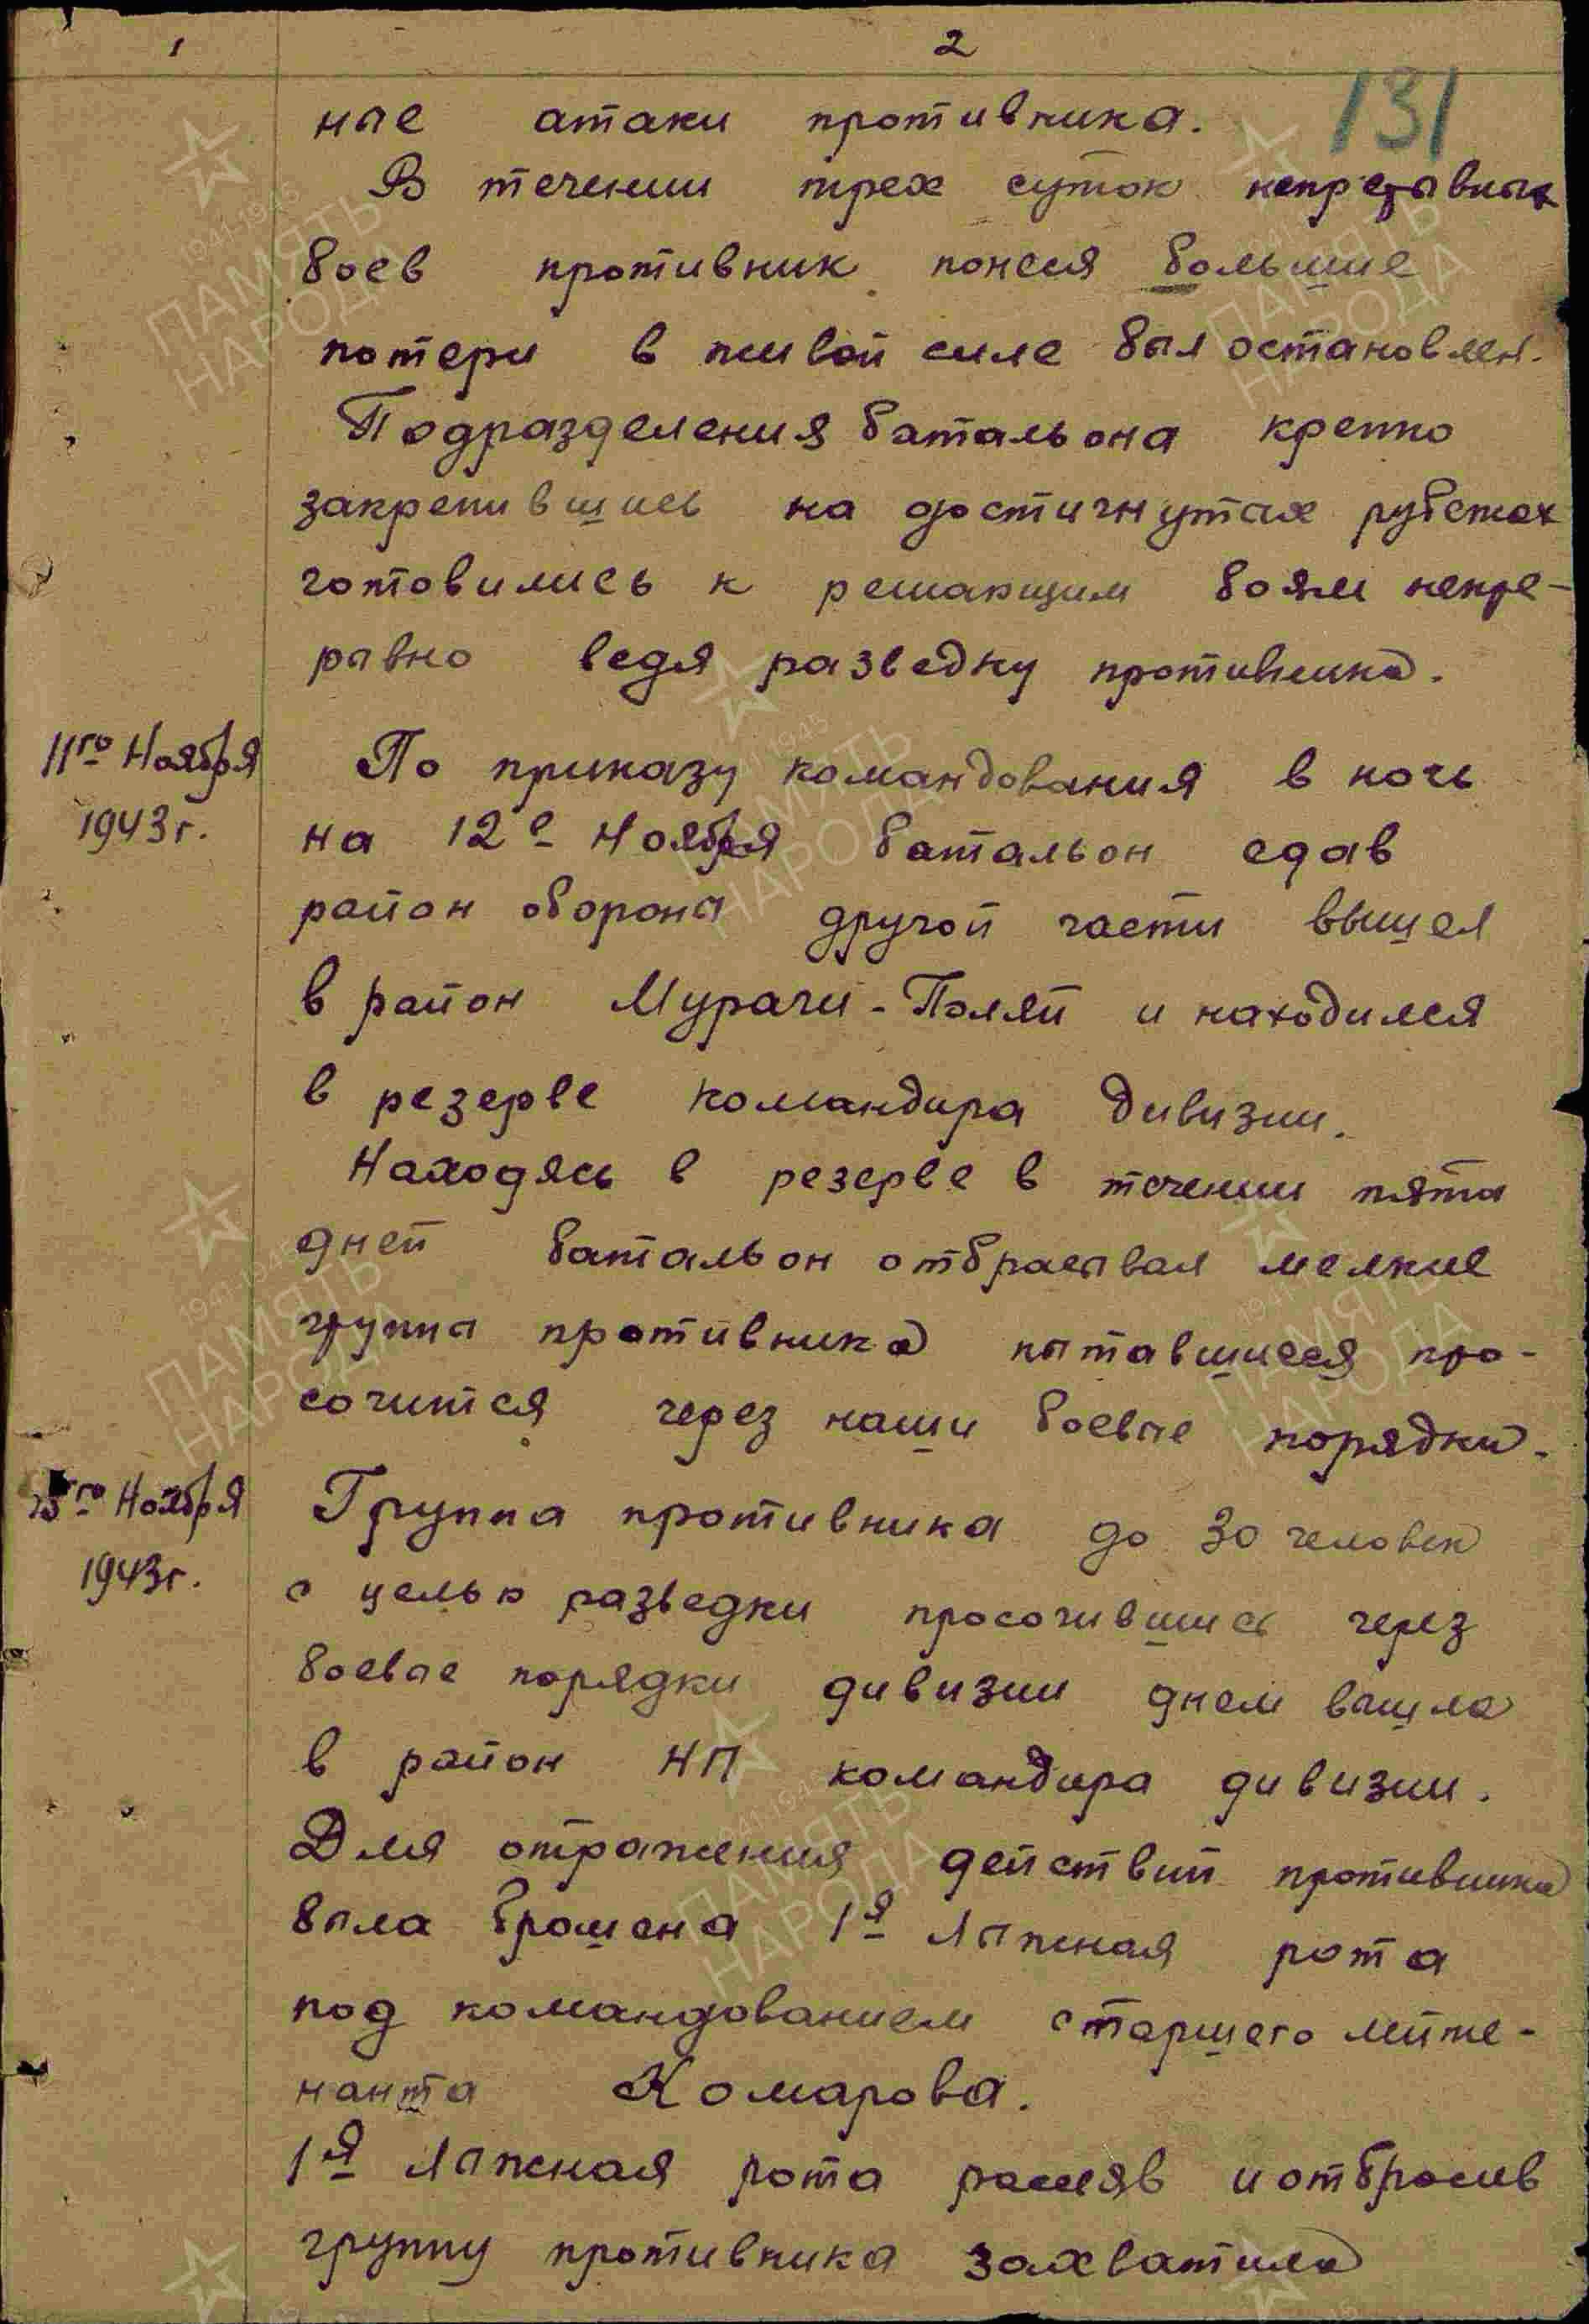 1 2
131
ные атаки противника.
В течении трех суток непрерывных
боев противник понеся большие
потери в живой силе был остановлен.
Подразделения батальона крепко
закрепившись на достигнутых рубежах
готовились к решающим боям непре-
рывно ведя разведку противника.
11го Ноября По приказу командования в ночь
1943г. на 12е Ноября батальон сдав
район обороны другой части вышел
в район Мурачи-Поляй и находился
в резерве командира дивизии.
Находясь в резерве в течении пяти
дней батальон отбрасывал мелкие
группы противника пытавшиеся про-
сочится через наши боевые порядки.
15го Ноября Группа противника до 30 человек
1943г. с целью разведки просочившись через
боевые порядки дивизии днем вышла
в район НП командира дивизии.
Для отражения действий противника
была брошена 1я Лыжная рота
под командованием старшего лейте-
нанта Комарова.
1я Лыжная рота рассеяв и отбросив
группу противника захватила
ПАМЯТЬ НАРОДА
1941-1945